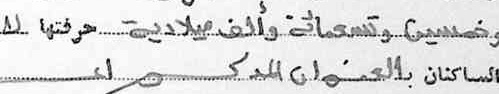 وخمسين وتسعمائة وألف ميلادية حرفتها لا
الساكنان بالعنوان المذكور اع